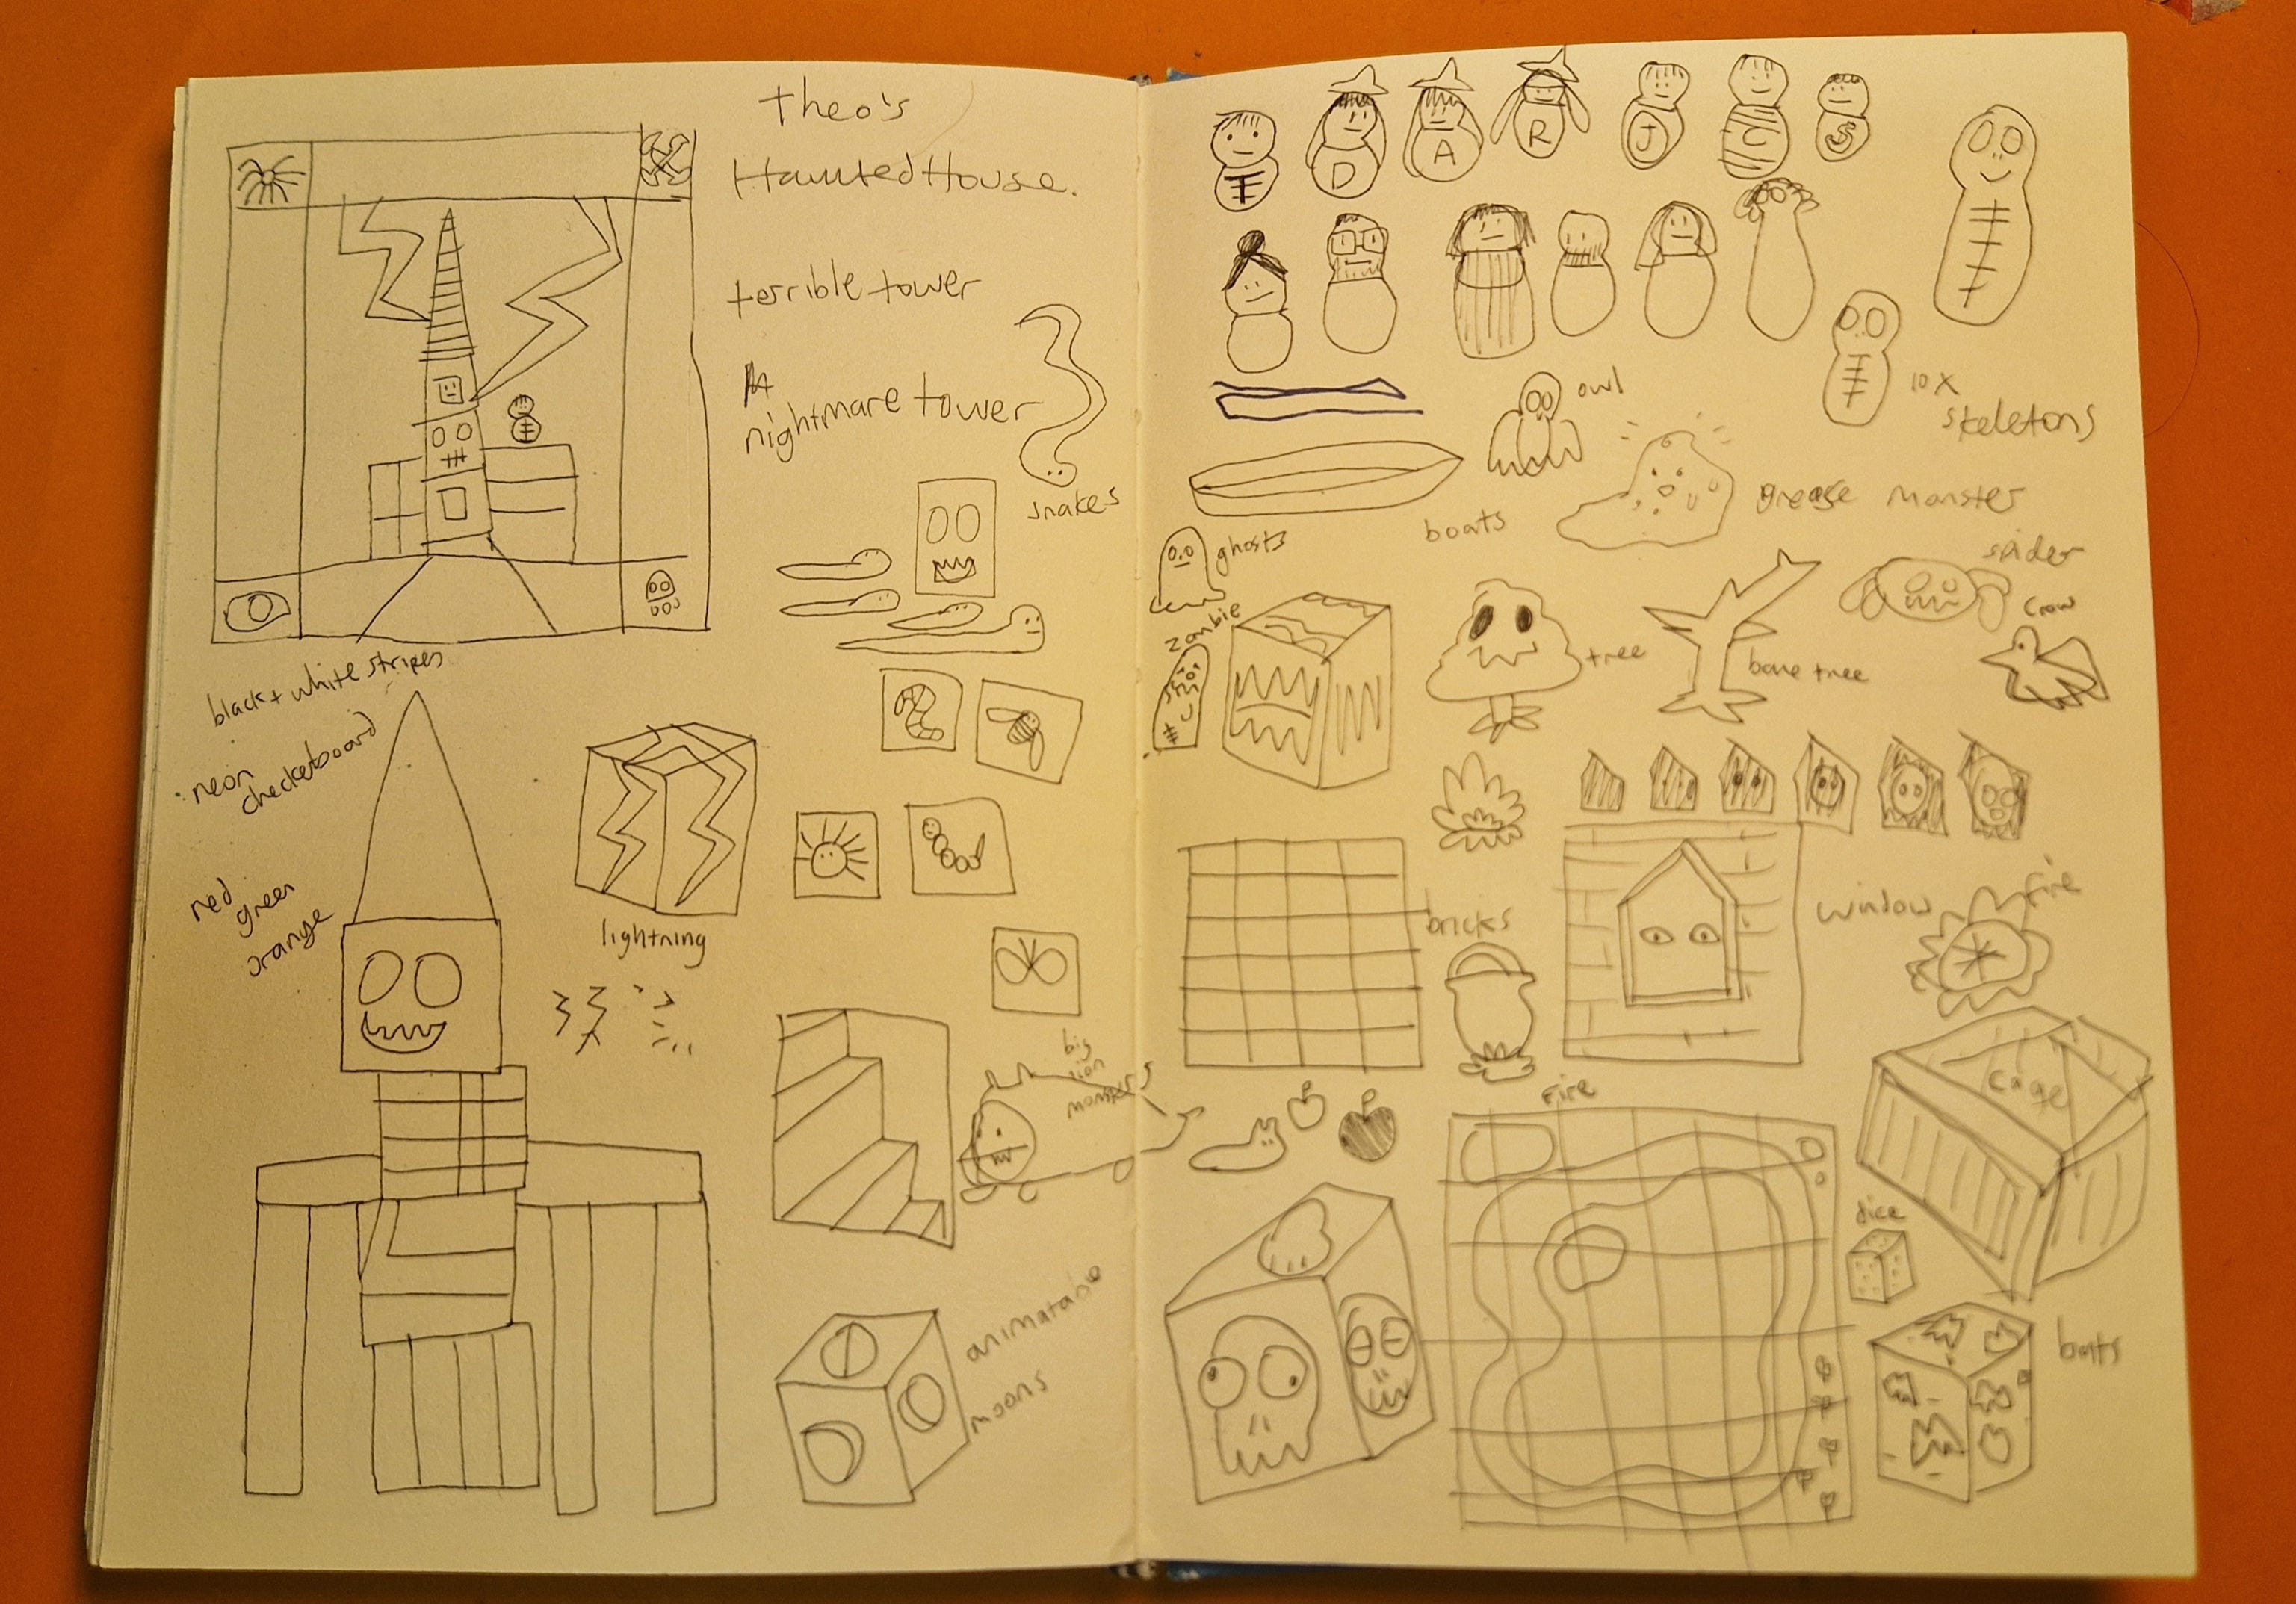 Theo's
Haunted House.
terrible tower
nightmare tower
snakes
black + white stripes
neon
checkerboard
red
green
orange
lightning
big
lion
monsters
animatable
moons
T
D
A
R
J
C
S
10 X
skeletons
owl
boats
grease monster
ghosts
zombie
tree
bone tree
spider
crow
bricks
window
fire
fire
cage
dice
bats